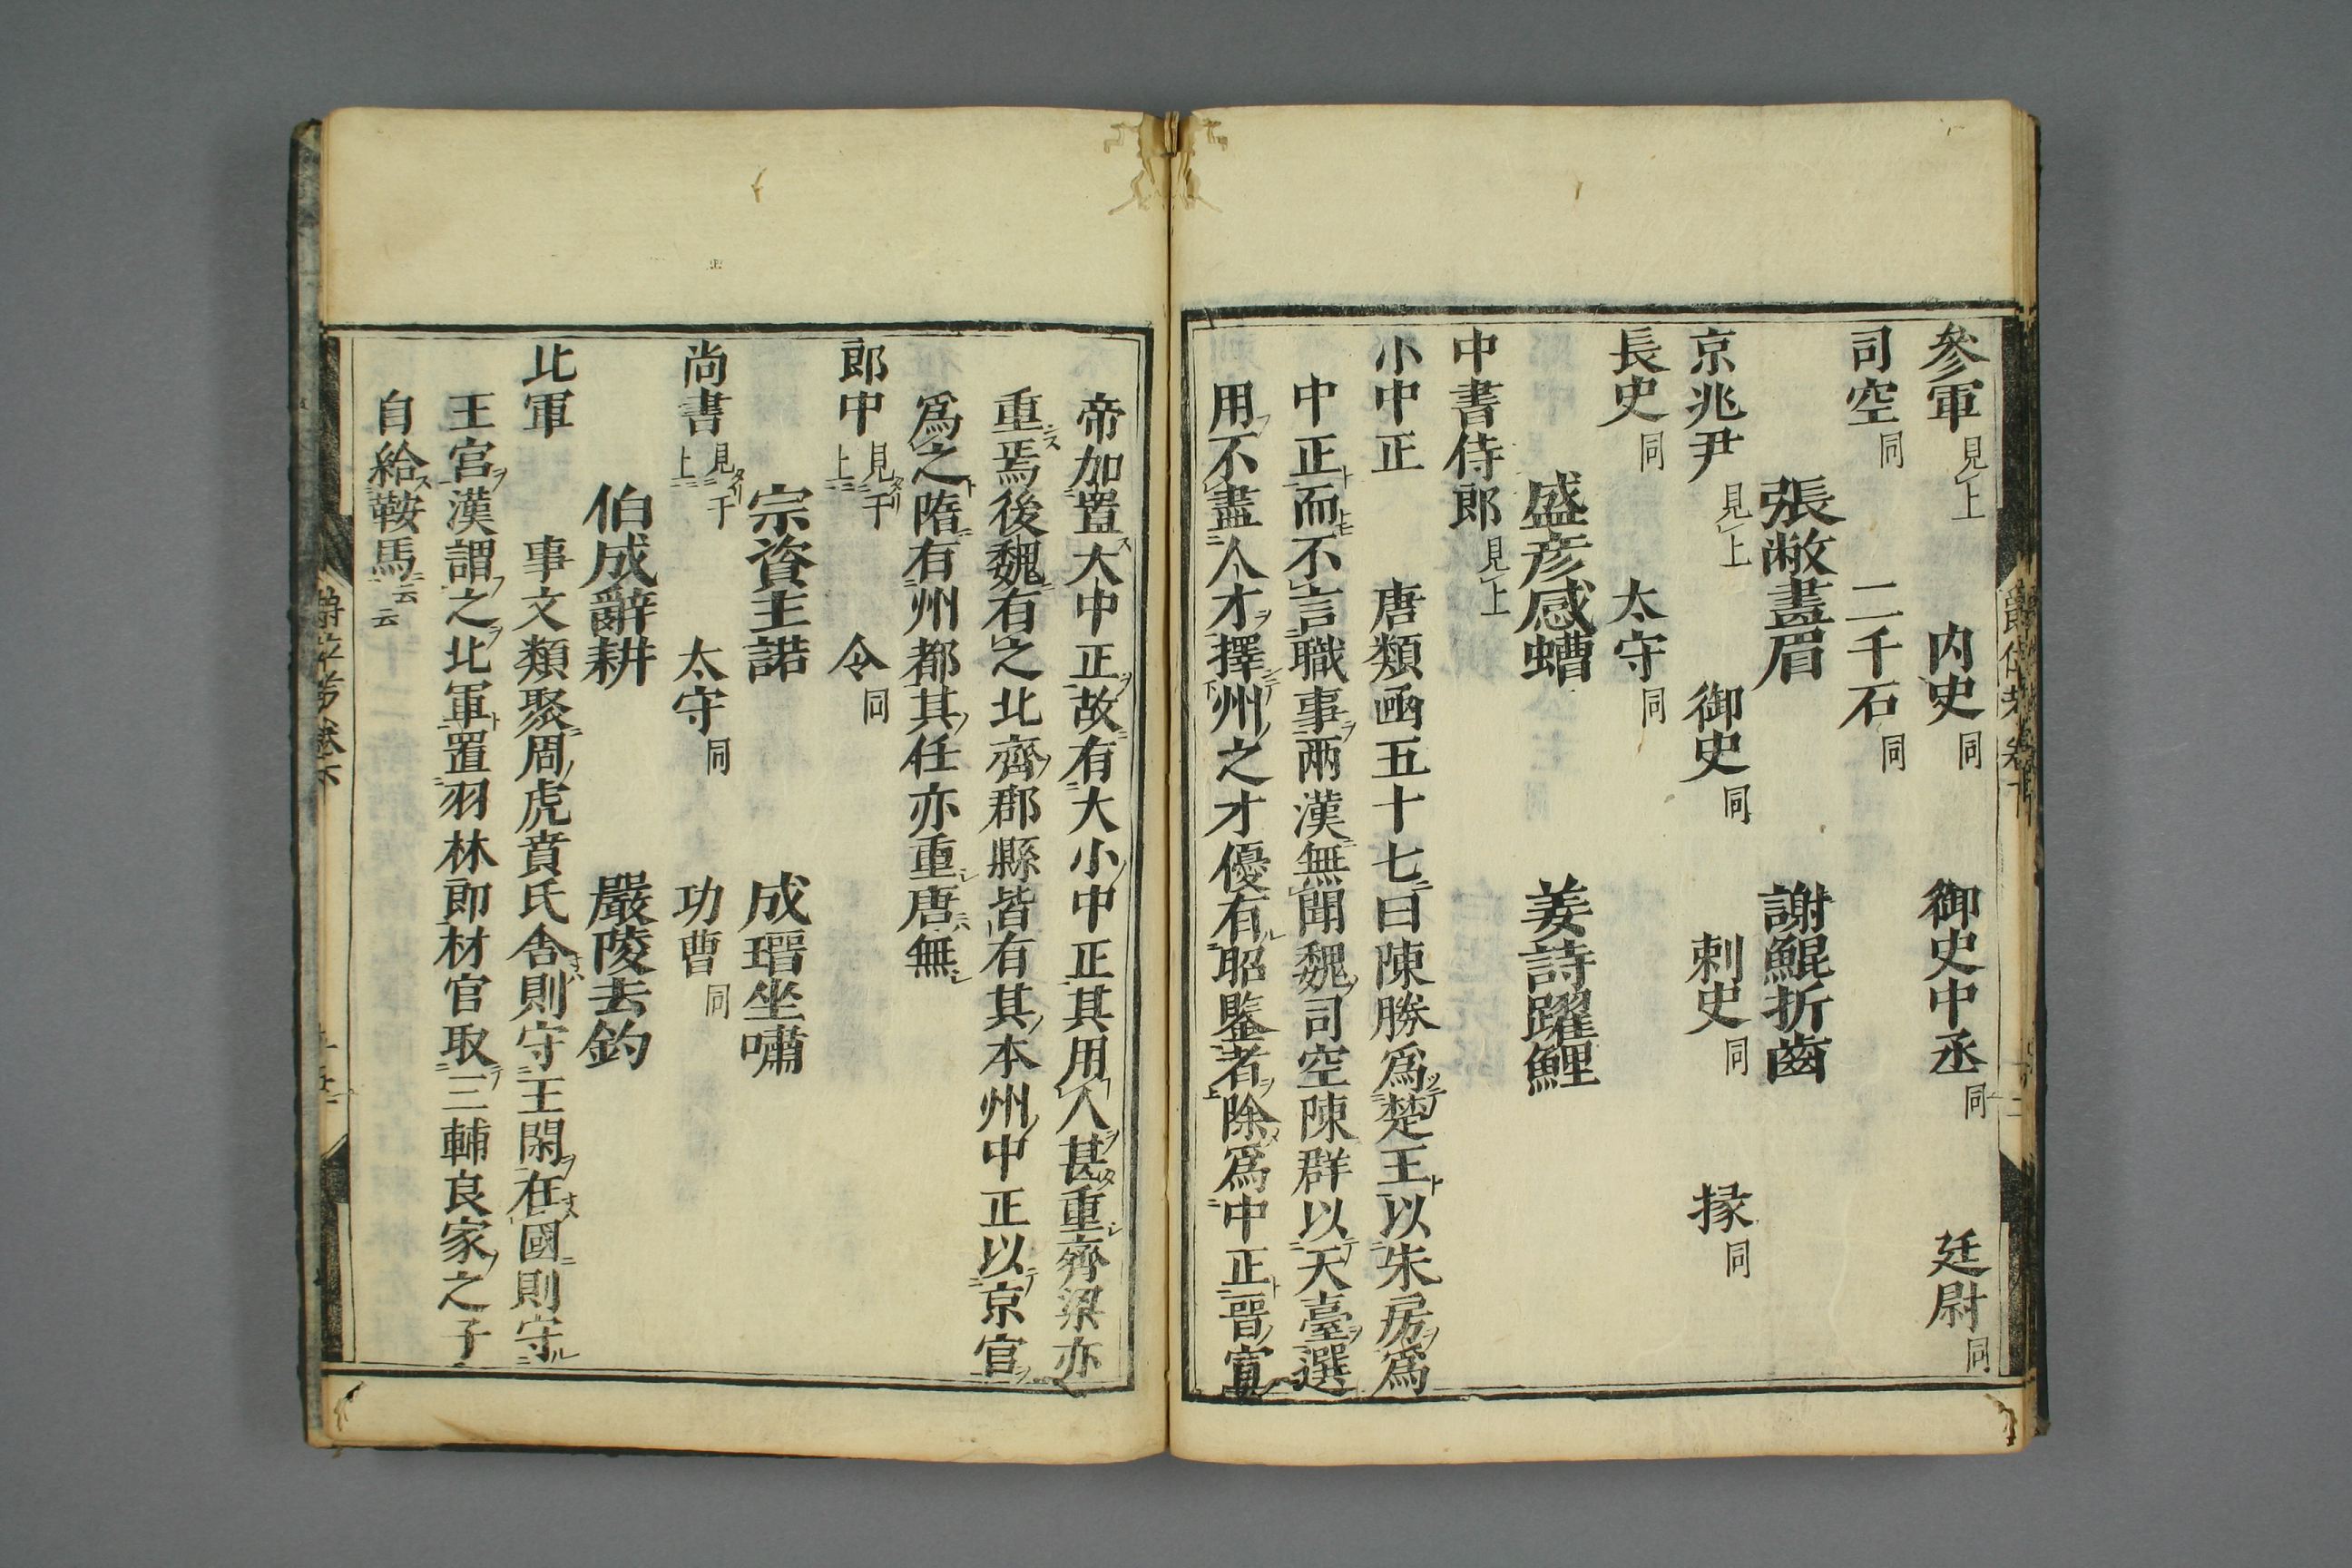 參軍見上 内史同 御史中丞同 廷尉同
司空同 二千石同
張敞畫眉 謝鯤折齒
京兆尹見上 御史同 刺史同 掾同
長史同 太守同
盛彦感螬 姜詩躍鯉
中書侍郎見上
小中正 唐類函五十七曰陳勝爲楚王以朱房爲
中正而不言職事兩漢無聞魏司空陳群以天臺選
用不盡人才擇州之才優有昭鑒者除爲中正晉宣
帝加置大中正故有大小中正其用人甚重齊梁亦
重焉後魏有之北齊郡縣皆有其本州中正以京官
爲之隋有州都其任亦重唐無
郎中見于上 令同
宗資主諾 成瑨坐嘯
尚書見于上 太守同 功曹同
伯成辭耕 嚴陵去釣
北軍 事文類聚周虎賁氏舍則守王閑在國則守
王宮漢謂之北軍置羽林郎材官取三輔良家之子
自給鞍馬云云